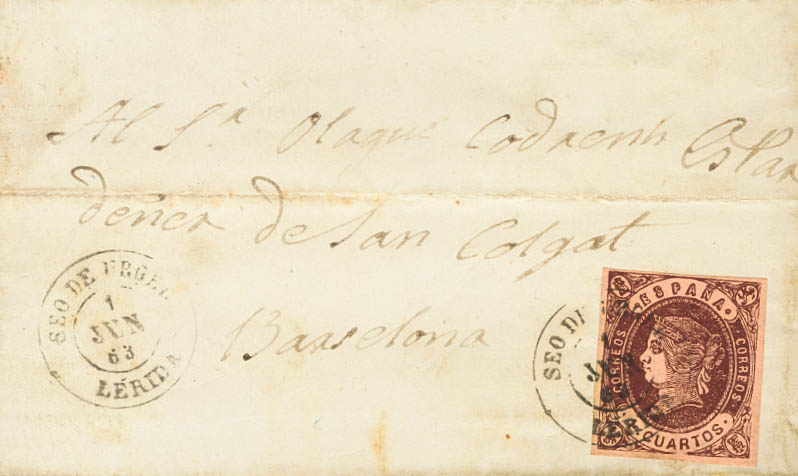 Al Sr. Olagué Codrenh Estar
dener de San Colgat
Barselona
SEO DE URGEL
1
JUN
63
LÉRIDA
SEO DE
1
JUN
LÉRIDA
ESPAÑA
CORREOS
CORREOS
CUARTOS.